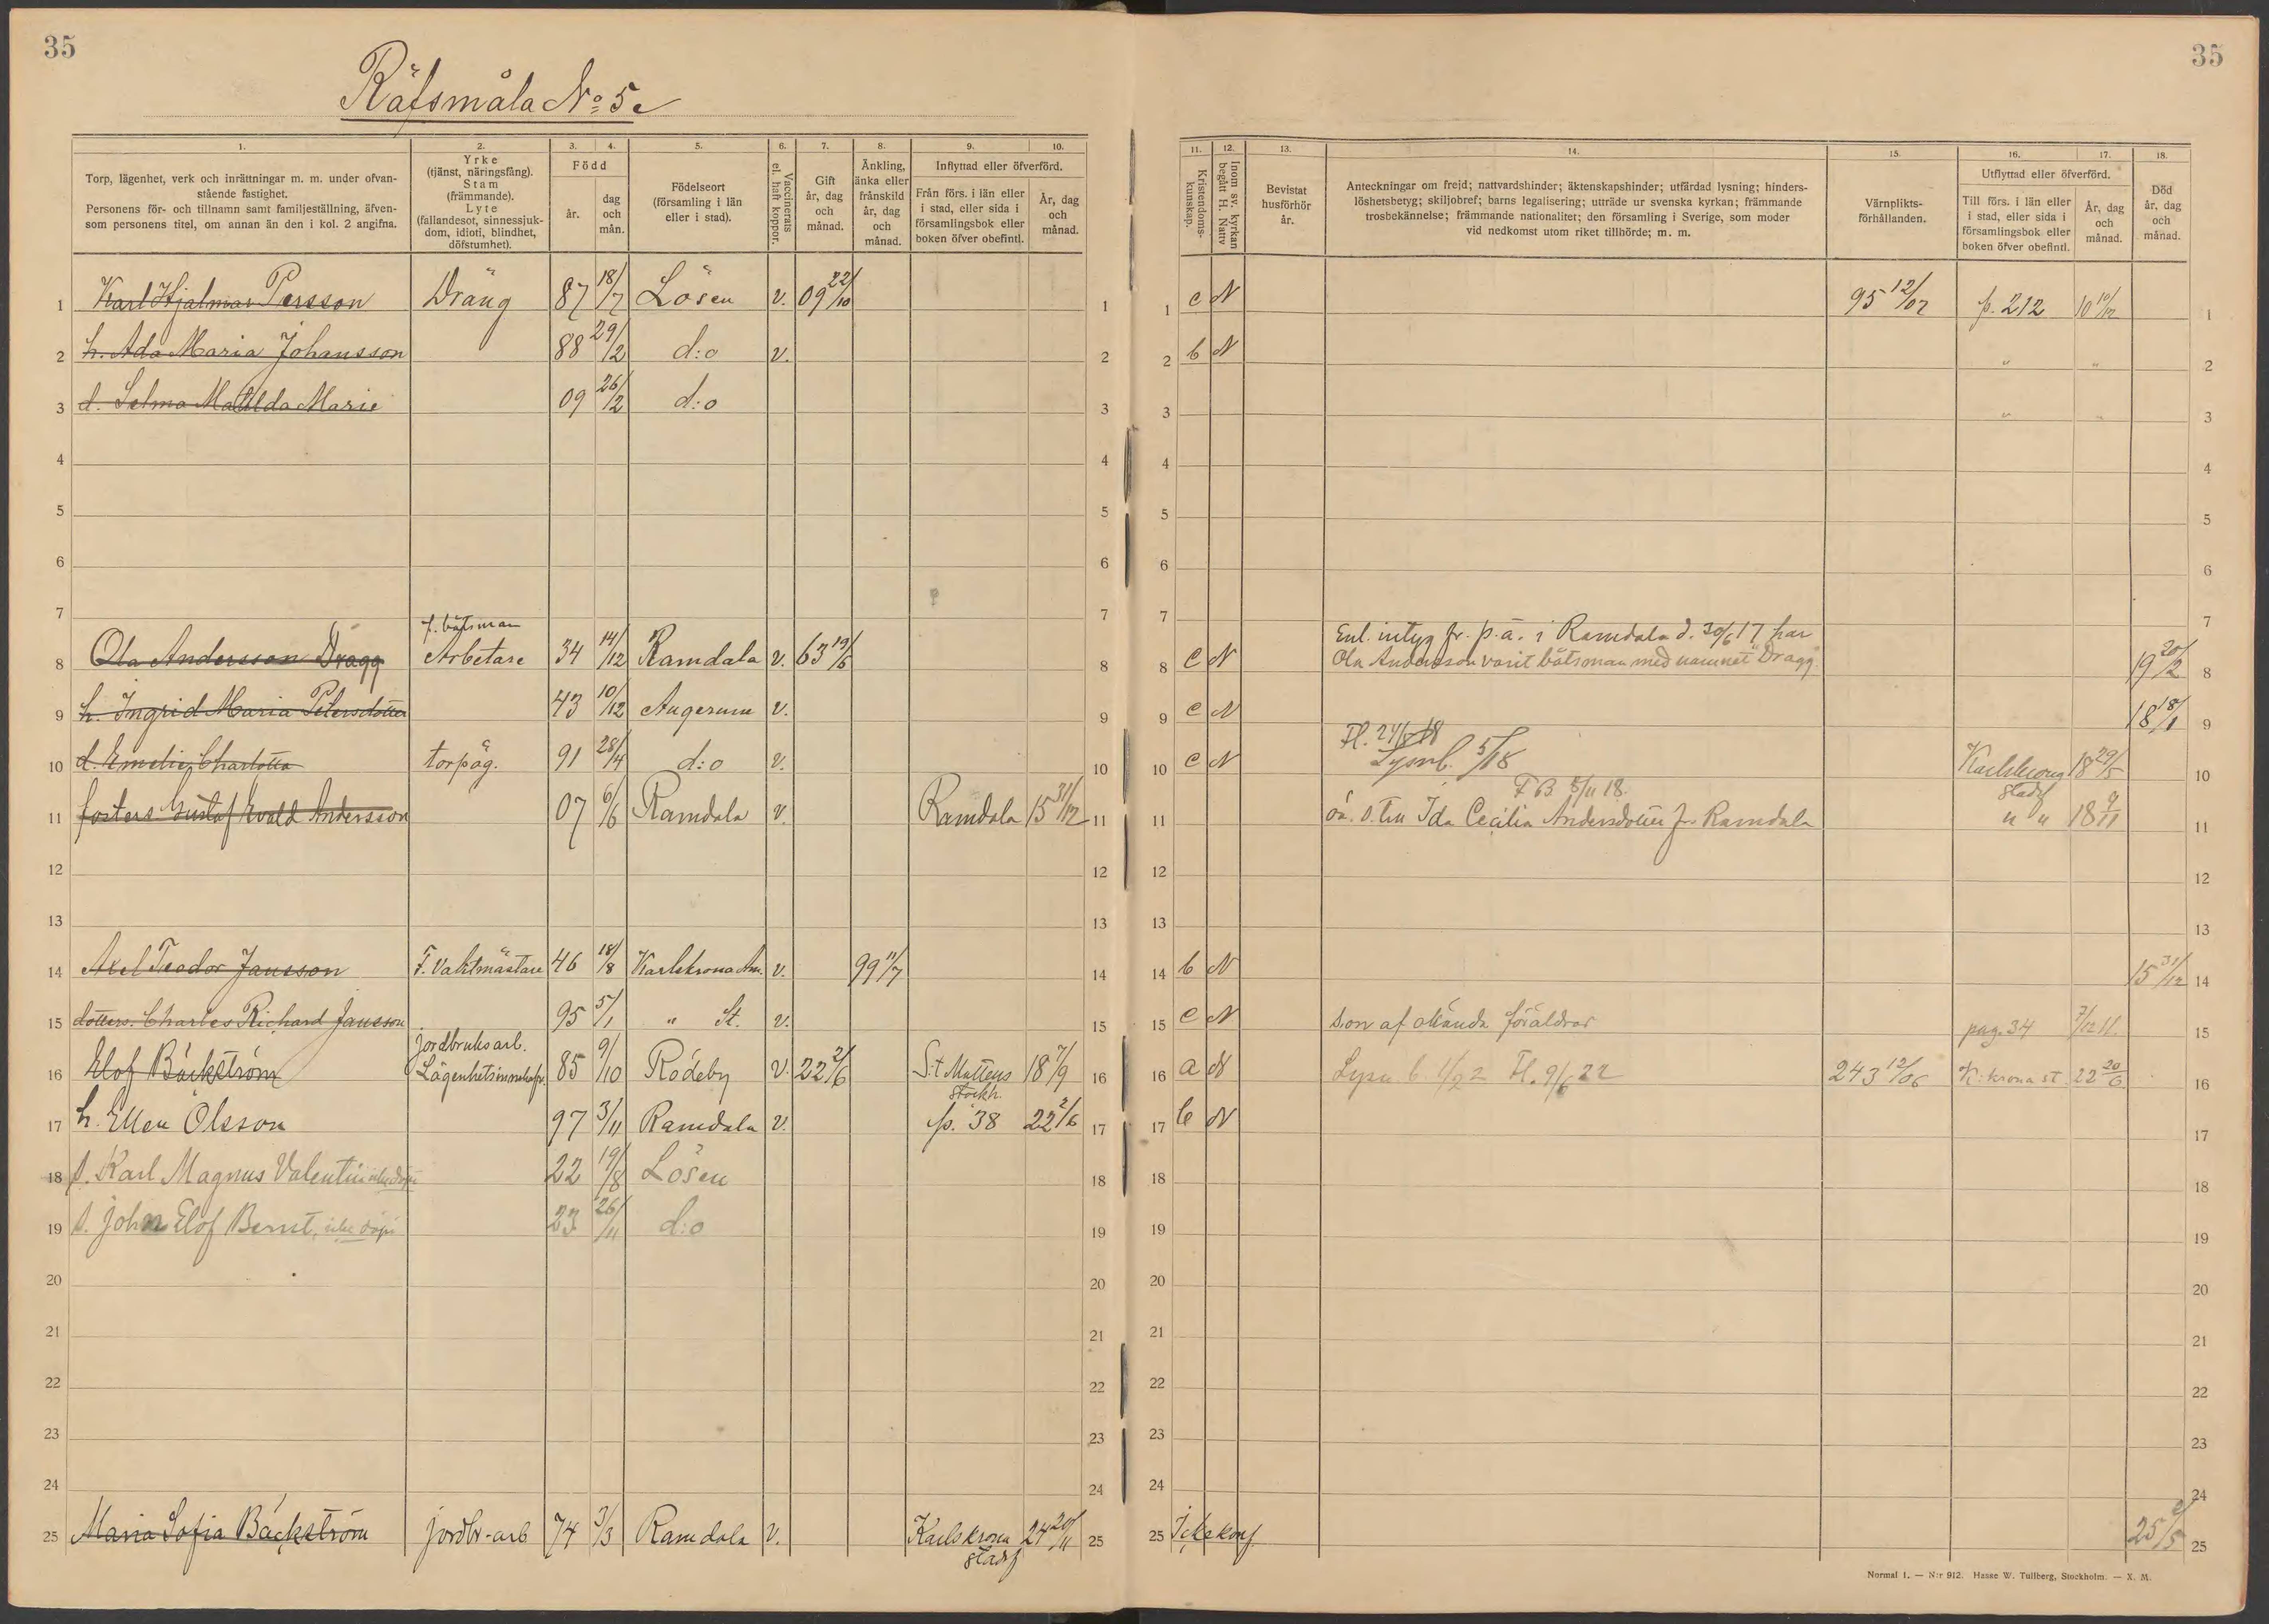 35
35
Räfsmåla No 5 c
1. 2. 3. 4. 5. 6. 7. 8. 9. 10.
Torp, lägenhet, verk och inrättningar m. m. under ofvan-
stående fastighet.
Personens för- och tillnamn samt familjeställning, äfven-
som personens titel, om annan än den i kol. 2 angifna.
Yrke
(tjänst, näringsfång).
Stam
(främmande).
Lyte
(fallandesot, sinnessjuk-
dom, idioti, blindhet,
döfstumhet).
Född
år.
dag
och
mån.
Födelseort
(församling i län
eller i stad).
Vaccinerats
el. haft koppor.
Gift
år, dag
och
månad.
Änkling,
änka eller
frånskild
år, dag
och
månad.
Inflyttad eller öfverförd.
Från förs. i län eller
i stad, eller sida i
församlingsbok eller
boken öfver obefintl.
År, dag
och
månad.
11. 12. 13. 14. 15. 16. 17. 18.
Kristendoms-
kunskap.
Inom sv. kyrkan
begått H. Nattv
Bevistat
husförhör
år.
Anteckningar om frejd; nattvardshinder; äktenskapshinder; utfärdad lysning; hinders-
löshetsbetyg; skiljobref; barns legalisering; utträde ur svenska kyrkan; främmande
trosbekännelse; främmande nationalitet; den församling i Sverige, som moder
vid nedkomst utom riket tillhörde; m. m.
Värnplikts-
förhållanden.
Utflyttad eller öfverförd.
Till förs. i län eller
i stad, eller sida i
församlingsbok eller
boken öfver obefintl.
År, dag
och
månad.
Död
år, dag
och
månad.
1 Karl Hjalmar Persson Dräng 87 18/7 Lösen v. 09 22/10 1
1 c N 95 12/07 p. 212 10 10/12 1
2 h. Ada Maria Johansson 88 29/2 d:o v. 2
2 b N " " 2
3 d. Selma Matilda Marie 09 26/12 d:o 3
3 " " 3
4 4
4 4
5 5
5 5
6 6
6 6
7 7
7 7
f. båtsman
Enl. intyg fr. p.ä. i Ramdala d. 30/6 17 har
8 Ola Andersson Dragg Arbetare 34 14/12 Ramdala v. 63 19/6 8
8 c N Ola Andersson varit båtsman med namnet "Dragg" 19 20/2 8
9 h. Ingrid Maria Petersdotter 43 10/12 Augerum v. 9
9 c N 18 18/1 9
Fl. 24/5 18
10 d. Emelie Charlotta torpäg. 91 28/4 d:o v. 10
10 c N Lysnb. 5/18 Karlskrona 18 29/5 10
stadsf
F B 5/11 18.
11 fosters Gustaf Evald Andersson 07 6/6 Ramdala v. Ramdala 15 31/12 11
11 oä. s. till Ida Cecilia Andersdotter fr. Ramdala " " 18 9/11 11
12 12
12 12
13 13
13 13
14 Axel Teodor Jansson F. Vaktmästare 46 18/8 Karlskrona Am. v. 99 11/7 14
14 b N 15 31/12 14
15 dotters. Charles Richard Jansson 95 5/1 " St. v. 15
15 c N Son af okända föräldrar pag. 34 7/12 11. 15
jordbruksarb.
16 Elof Bäckström Lägenhetsinnehafv. 85 9/10 Rödeby v. 22 2/6 S:t Matteus 18 7/9 16
Stockh.
16 a N Lysn b. 1/22 Fl. 9/6 22 243 12/06 K:krona st 22 20/6 16
17 h. Ellen Olsson 97 3/11 Ramdala v. p. 38 22 2/6 17
17 b N 17
18 s. Karl Magnus Valentin icke döpt 22 19/8 Lösen 18
18 18
19 s. John Elof Bernt, icke döpt 23 26/11 d:o 19
19 19
20 20
20 20
21 21
21 21
22 22
22 22
23 23
23 23
24 24
24 24
25 Maria Sofia Bäckström jordbr-arb 74 3/3 Ramdala v. Karlskrona 24 20/11 25
stadsf
25 Icke konf 25 2/5 25
Normal 1. — N:r 912. Hasse W. Tullberg, Stockholm. — X. M.